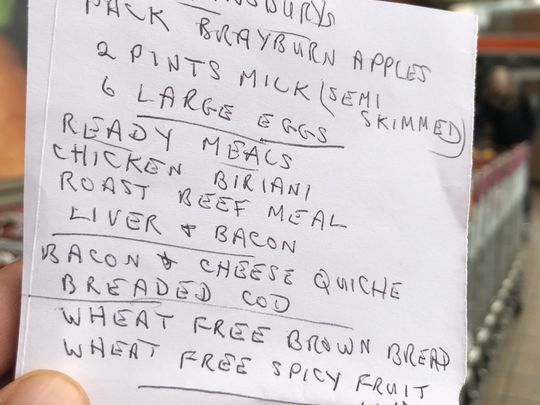 PACK BRAYBURN APPLES
2 PINTS MILK (SEMI
SKIMMED)
6 LARGE EGGS
READY MEALS
CHICKEN BIRIANI
ROAST BEEF MEAL
LIVER & BACON
BACON & CHEESE QUICHE
BREADED COD
WHEAT FREE BROWN BREAD
WHEAT FREE SPICY FRUIT